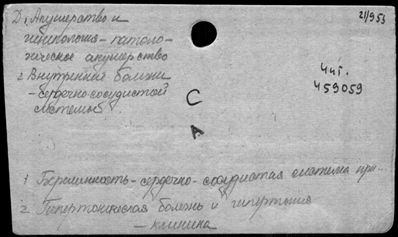 Д. 1 Акушерство и
гинекология - патоло-
гическое акушерство
2 Внутренние болезни
- сердечно-сосудистой
системы
21/953
Чит.
459059
С
А
1 Беременность - сердечно-сосудистая система при..
2. Гипертоническая болезнь и гипертония
- клиника